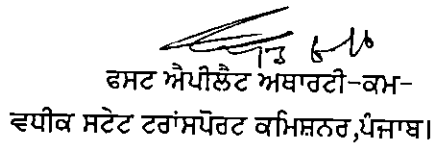 ਫਸਟ ਐਪੀਲੈਟ ਅਥਾਰਟੀ-ਕਮ-
ਵਧੀਕ ਸਟੇਟ ਟਰਾਂਸਪੋਰਟ ਕਮਿਸ਼ਨਰ,ਪੰਜਾਬ।